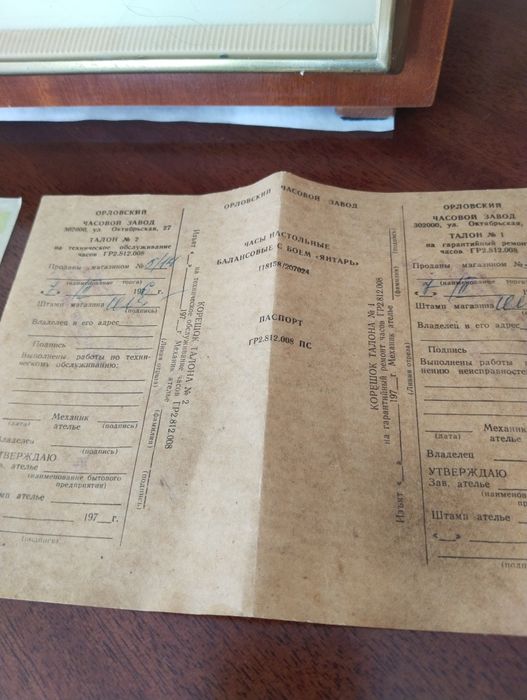 ОРЛОВСКИЙ
ЧАСОВОЙ ЗАВОД
302000, ул. Октябрьская, 27
ТАЛОН № 2
на техническое обслуживание
часов ГР2.812.008
Проданы магазином №
(наименование торга)
« 7 » 197 г.
Штамп магазина
(подпись)
Владелец и его адрес
Подпись
Выполнены работы по техни-
ческому обслуживанию:
Механик
(дата) ателье (подпись)
Владелец
(подпись)
УТВЕРЖДАЮ
Зав. ателье
(наименование бытового
предприятия)
Штамп ателье
197 г.
(подпись)
КОРЕШОК ТАЛОНА № 2
на техническое обслуживание часов ГР2.812.008
Изъят « » 197 г. Механик ателье
(фамилия) (подпись)
(Линия отреза)
ОРЛОВСКИЙ ЧАСОВОЙ ЗАВОД
ЧАСЫ НАСТОЛЬНЫЕ
БАЛАНСОВЫЕ С БОЕМ «ЯНТАРЬ»
ПАСПОРТ
ГР2.812.008 ПС
КОРЕШОК ТАЛОНА № 1
на гарантийный ремонт часов ГР2.812.008
Изъят « » 197 г. Механик ателье
(фамилия) (подпись)
(Линия отреза)
ОРЛОВСКИЙ
ЧАСОВОЙ ЗАВОД
302000, ул. Октябрьская,
ТАЛОН № 1
на гарантийный ремонт
часов ГР2.812.008
Проданы магазином №
(наименование
Штамп магазина
(подпись)
Владелец и его адрес
Подпись
Выполнены работы
нению неисправносте
Механик
(дата) ателье
Владелец
УТВЕРЖДАЮ
Зав. ателье
(наимено
пре
Штамп ателье
« »
(под